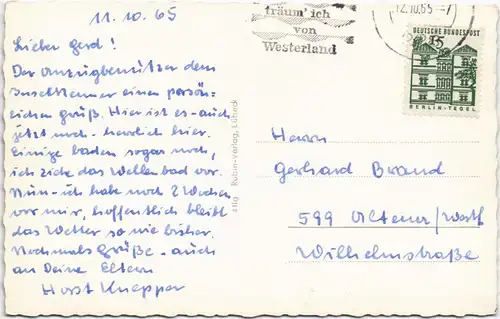 11.10.65
Lieber Gerd!
Der Anzugbenützer dem
Inselkenner einen persön-
lichen Gruß. Hier ist es - auch
jetzt noch - herrlich hier.
Einige baden sogar noch,
ich ziehe das Wellenbad vor.
Nun - ich habe noch 2 Wochen
vor mir, hoffentlich bleibt
das Wetter so wie bisher.
Nochmals Grüße - auch
an Deine Eltern
Horst Knepper
Rubin-Verlag, Lübeck
träum' ich
von
Westerland
12.10.65 -7
DEUTSCHE BUNDESPOST
15
BERLIN-TEGEL
Herrn
Gerhard Brand
599 Altena/Westf
Wilhelmstraße